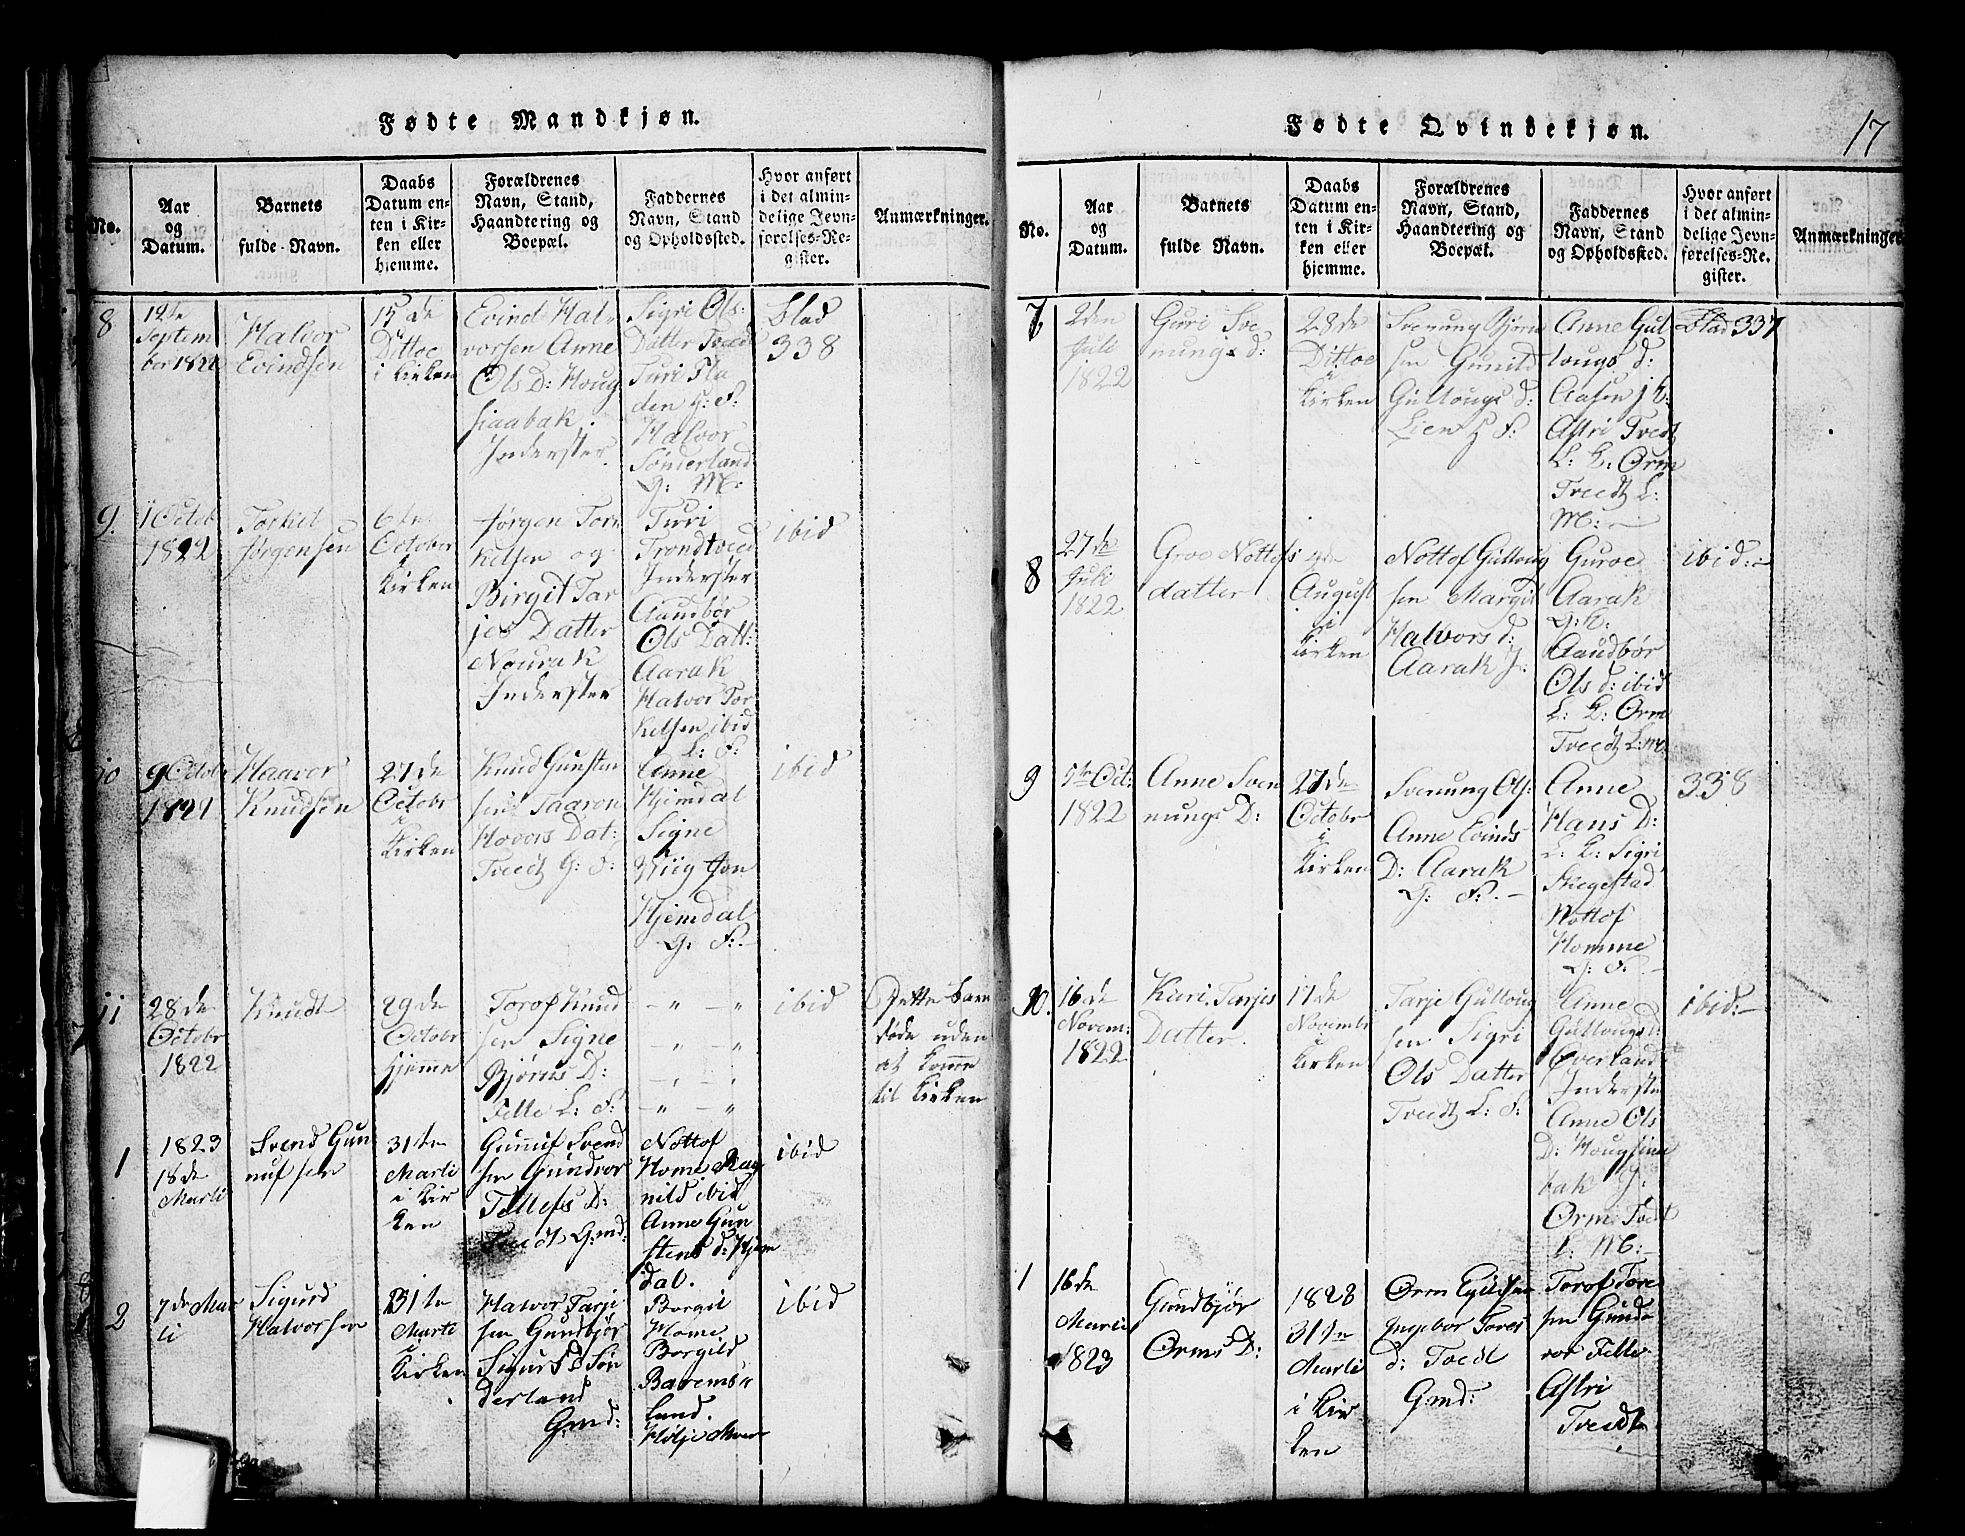 Fødte Mandkjøn.
No.
Aar
og
Datum.
Barnets
fulde Navn.
Daabs
Datum en-
ten i Kir-
ken eller
hjemme.
Forældrenes
Navn, Stand,
Haandtering og
Boepæl.
Faddernes
Navn, Stand
og Opholdssted.
Hvor anført
i det almin-
delige Jevn-
førelses-Re-
gister.
Anmærkninger.
8
September 1822
Halvor
Evindsen
15de
Dittoe
i Kirken
Evind Hal-
vorsen Anne
Ols D: Houg
siaabak
Inderster
Sigri Ols:
Datter Tvedt
Turi Fla
den g: F:
Halvor
Sønderland
G: M:
Blad
338
9.
1 Octob
1822
Torkel
Jørgensen
6te
October
i
Kirken
Jørgen Tor
kelsen og
Birgit Tar
jes Datter
Nourak
Inderster
Turi
Trondtveed
Inderster
Aaudbør
Ols Datt:
Aarak
Halvor Tor
kelsen ibid
L: F:
ibid
10
9 Octobr
1822
Haavor
Knudsen
27de
Octobr
i
Kirken
Knud Gunsten
sen Taaron
Hovors Dat:
Tvedt G: F:
Anne
Hjemdal
Signe
Wiig Jon
Hjemdal
G: F:
ibid
11
28de
Octobr
1822
Knudt
29de
Octobr
hjemme
Torof Knud
sen Signe
Bjørns D:
Felle L: F:
— " — "
— " — "
— " — "
— " — "
ibid
Dette Barn
døde uden
at komme
til Kirken
1
1823
18de
Marti
Svend Gun
nufsen
31te
Marti
i Kir
ken
Gunnuf Svend
sen Gundvor
Tellefs D:
Tvedt G:md:
Nottof
Home Rag
nild ibid
Anne Gun
stens d: Hjem
dal.
ibid
2
7de Mar
ti
Sigurd
Halvorsen
31te
Marti
i
Kirken
Halvor Tarje
sen Gundbjør
Sigurds D Søn
derland
Gmd:
Borgil
Home
Borgild
Bærembu
land.
Hølje Moen
ibid
Fødte Qvindekjøn.
17
No.
Aar
og
Datum.
Barnets
fulde Navn.
Daabs
Datum en-
ten i Kir-
ken eller
hjemme.
Forældrenes
Navn, Stand,
Haandtering og
Boepæl.
Faddernes
Navn, Stand
og Opholdssted.
Hvor anført
i det almin-
delige Jevn-
førelses-Re-
gister.
Anmærkninger
7
2den
Juli
1822
Guri Sve
nungs d:
28de
Dittoe
i
Kirken
Svenung Bjørn
sen Gunild
Gullougs d:
Lien G F:
Anne Gul
lougs d:
Aasen j K:
Astri Tvedt
L: K: Orm
Tveedt L:
M:
Blad 337
8
27de
Juli
1822
Groe Nottofs
datter
August
i
Kirken
Nottof Gulloug
sen Margit
Halvors d:
Aarak J:
Guroe
Aarak
G: K:
Aaudbør
Ols d: ibid
L: K: Orm
Tveedt L: M:
ibid:
9
5te Oct:
1822
Anne Sven
nungs D:
27de
Octobr
i
Kirken
Svenung Ols:
Anne Evinds
D: Aarak
G: F:
Anne
Hans D:
L: K: Sigri
Skegestad
Nottof
Homme
G: F:
338
10.
16de
Novem:
1822
Kari Tarjes
Datter
17de
Novembr
i
Kirken
Tarje Gulloug
sen Sigri
Ols Datter
Tvedt L: F:
Anne
Gullougsd:
Overland
Inderste
Anne Ols
D: Hougsiaa
bak J:
Orm Tvedt
L: M:
ibid:
1
16de
Marti
1823
Gundbjør
Orms D:
1823
31te
Marti
i Kir
ken
Orm Egildsen
Ingebor Tores
d: Tvedt
Gmd:
Torof Tore
sen Gundo
vor Felle
Astri
Tveedt